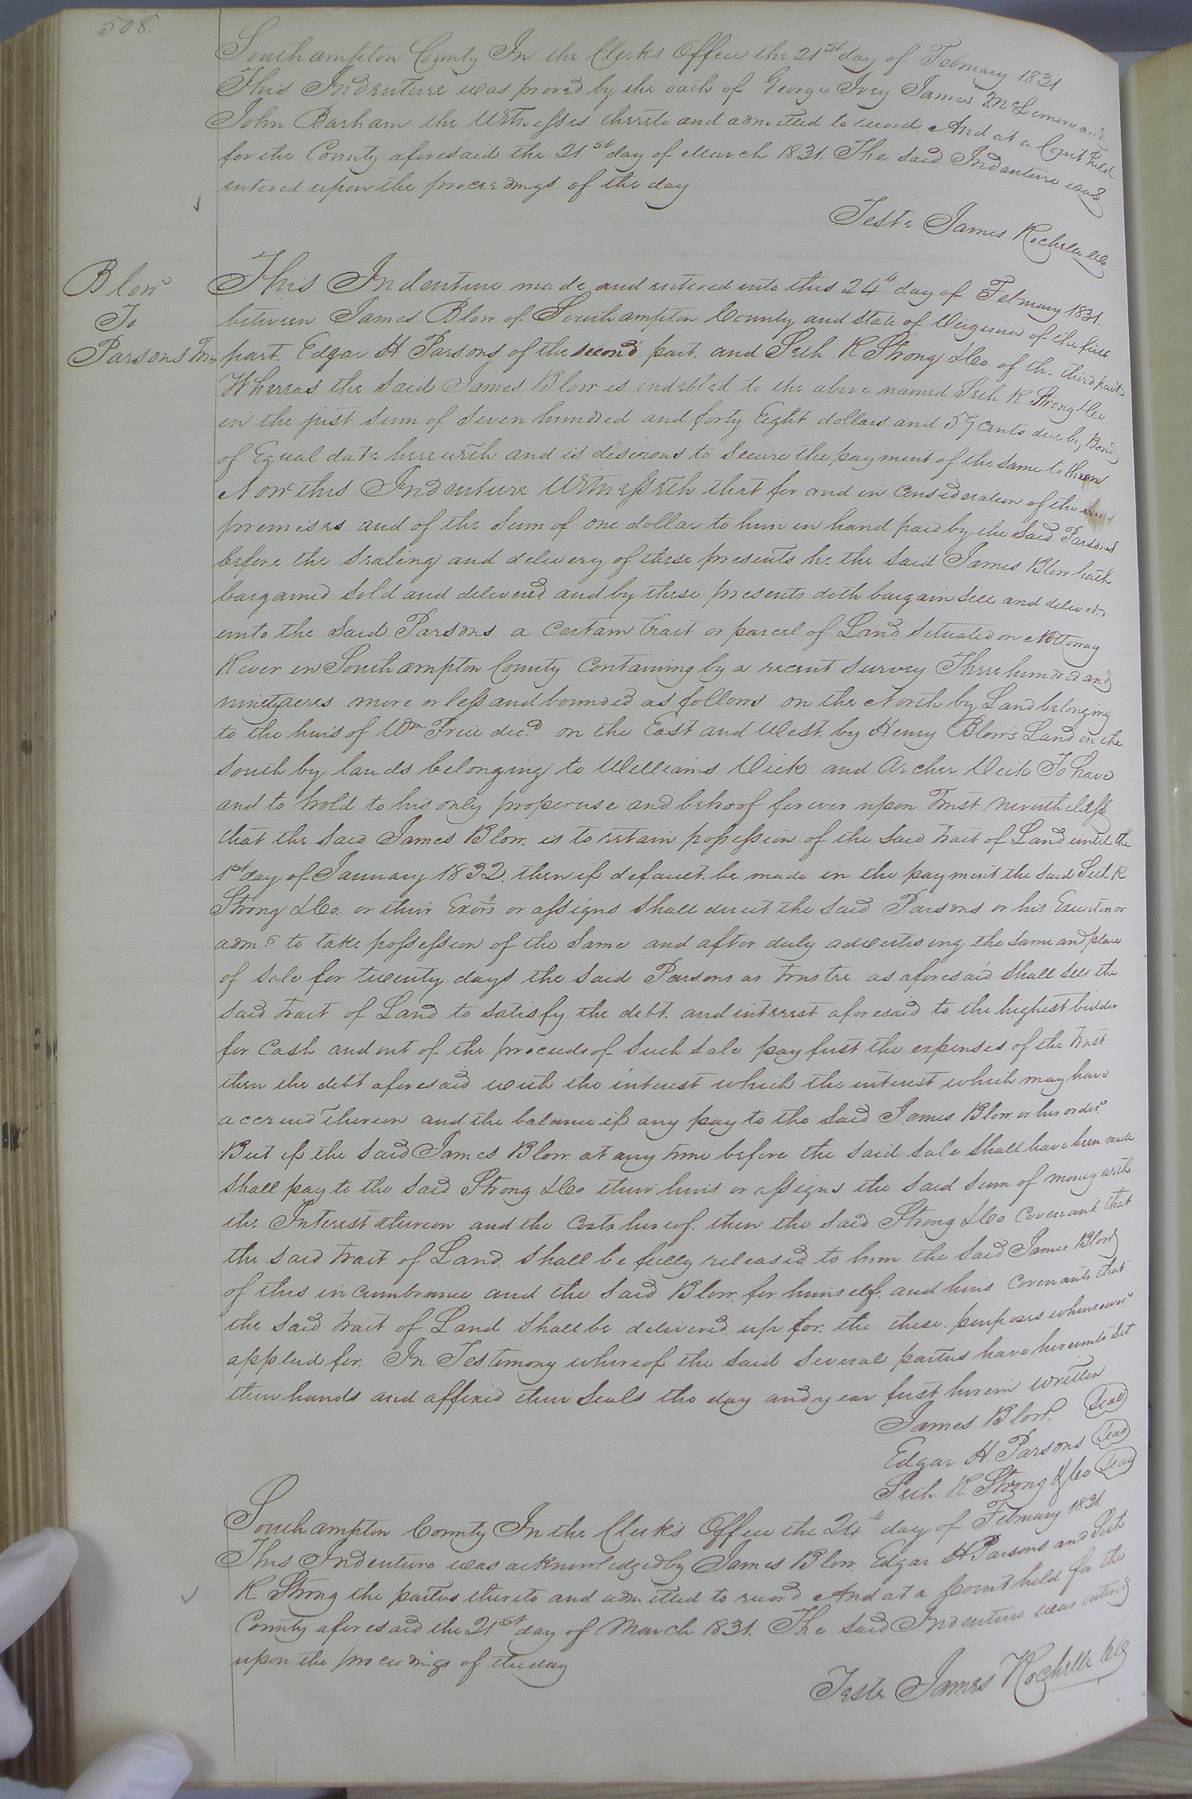 508.
Southampton County In the Clerks Office the 21st day of February 1831
This Indenture was proved by the oath of George Ivey James McLemore and
John Barham the Witnesses thereto and admitted to record. And at a Court held
for the County aforesaid the 21st day of March 1831. The said Indenture was
entered upon the proceedings of the day
Teste James Rochelle Clk
Blow
To
Parsons Trs
This Indenture made and entered into this 24th day of February 1831.
between James Blow of Southampton County and state of Virginia of the first
part. Edgar H Parsons of the second part. and Seth K Strong & Co of the third part.
Whereas the said James Blow is indebted to the above named Seth K Strong & Co
in the just sum of Seven hundred and forty Eight dollars and 57 cents due by Bond
of Equal date herewith and is desirous to secure the payment of the same to them
Now this Indenture Witnesseth that for and in consideration of the
premises and of the sum of one dollar to him in hand paid by the said Parsons
before the sealing and delivery of these presents he the said James Blow hath
bargained sold and delivered and by these presents doth bargain sell and deliver
unto the said Parsons a certain tract or parcel of Land situated on Nottoway
River in Southampton County containing by a recent survey Three hundred and
ninety acres more or less and bounded as follows on the North by Land belonging
to the heirs of Wm Trice decd on the East and West by Henry Blows Land on the
south by lands belonging to Williams Vick and Archer Vick To have
and to hold to his only proper use and behoof forever upon Trust nevertheless
that the said James Blow is to retain possession of the said tract of Land until the
1st day of January 1832. then if default be made in the payment the said Seth K
Strong & Co. or their Exors or assigns shall direct the said Parsons or his Executor or
admr to take possession of the same and after duly advertising the same and place
of sale for twenty days the said Parsons as trustee as aforesaid shall sell the
said tract of Land to satisfy the debt and interest aforesaid to the highest bidder
for Cash and out of the proceeds of such sale pay first the expenses of the trust
then the debt aforesaid with the interest which the interest which may have
accrued thereon and the balance if any pay to the said James Blow or his order.
But if the said James Blow at any time before the said sale shall have been made
shall pay to the said Strong & Co their heirs or assigns the said sum of money with
the Interest thereon and the costs hereof. then the said Strong & Co covenant that
the said tract of Land shall be fully released to him the said James Blow
of this incumbrance and the said Blow for himself and heirs covenants that
the said tract of Land shall be delivered up for the these purposes whensoever
applied for. In Testimony whereof the said several parties have hereunto set
their hands and affixed their seals the day and year first herein written
James Blow. Seal
Edgar H Parsons Seal
Seth K Strong & Co Seal
Southampton County In the Clerks Office the 24th day of February 1831.
This Indenture was acknowledged by James Blow Edgar H Parsons and Seth
K Strong the parties thereto and admitted to record And at a Court held for the
County aforesaid the 21st day of March 1831. The said Indenture was entered
upon the proceedings of the day
Teste James Rochelle Clk